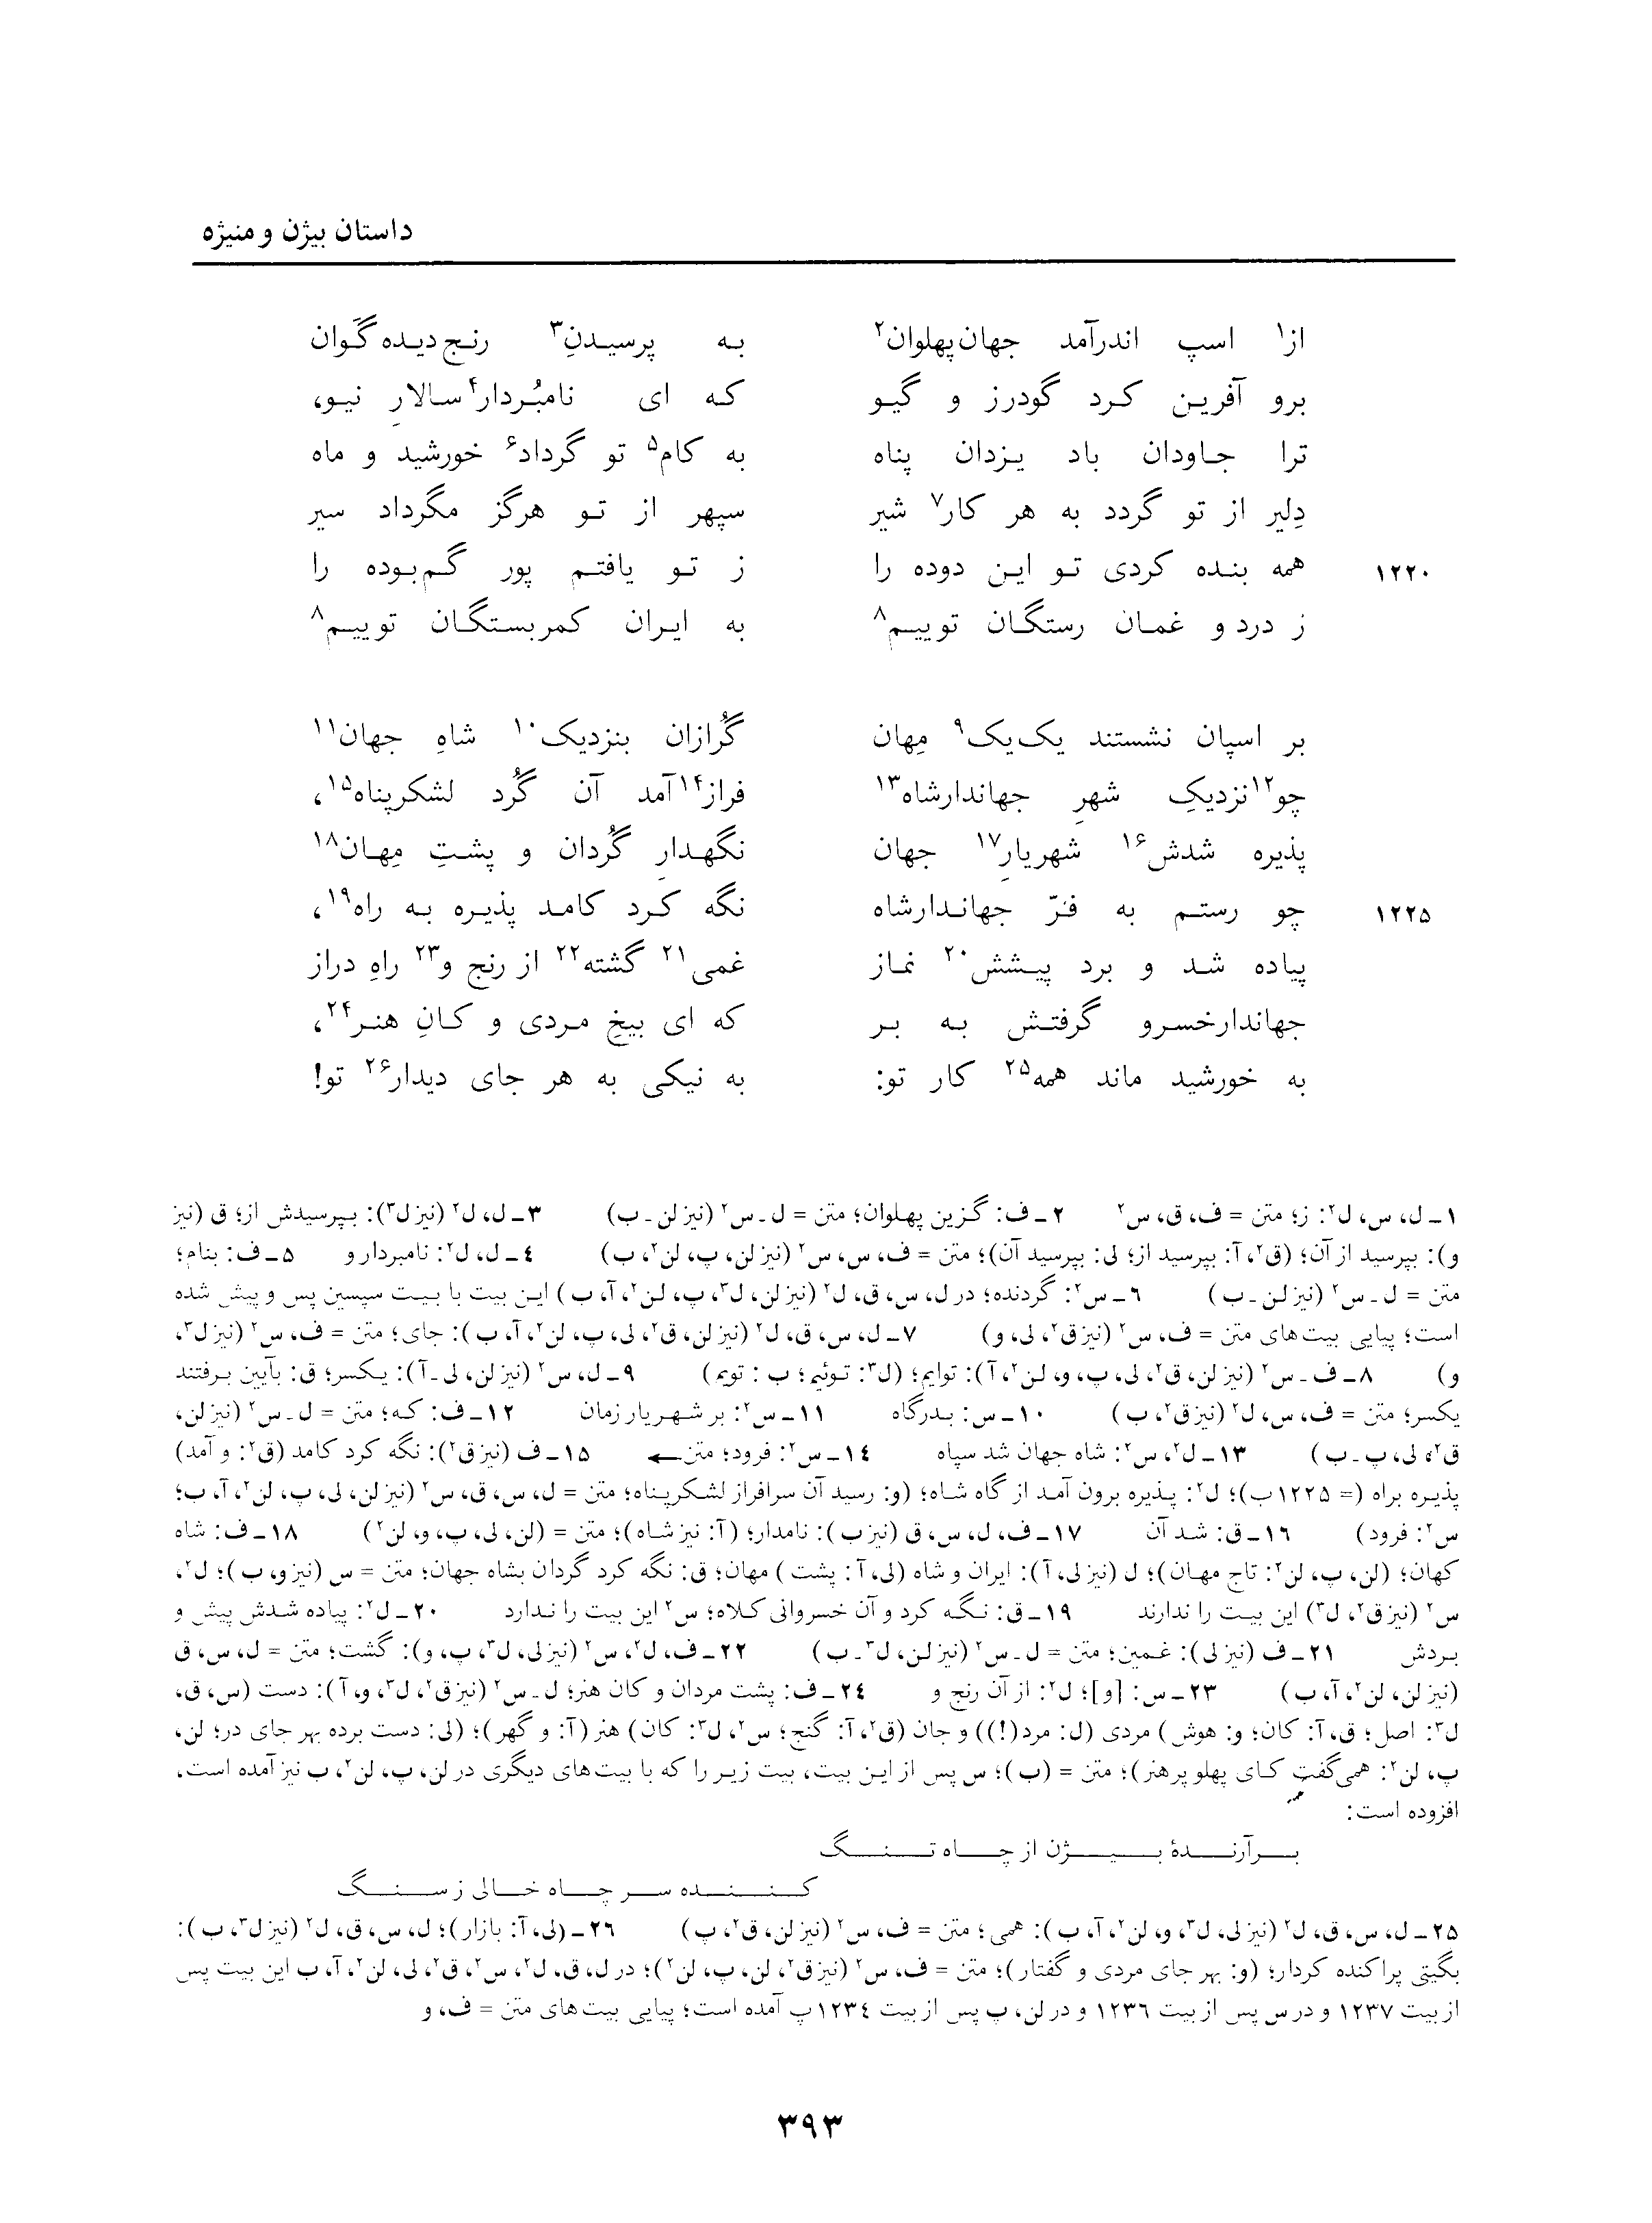 داستان بیژن و منیژه
از۱ اسپ اندرآمد جهان‌پهلوان۲ به پرسیدنِ۳ رنج‌دیده گَوان
برو آفرین کرد گودرز و گیو که ای نامبُردار۴ سالارِ نیو،
ترا جاودان باد یزدان پناه به کام۵ تو گرداد۶ خورشید و ماه
دِلیر از تو گردد به هر کار۷ شیر سپهر از تو هرگز مگرداد سیر
۱۲۲۰ همه بنده کردی تو این دوده را ز تو یافتم پور گم‌بوده را
ز درد و غمان رستگان توییم۸ به ایران کمربستگان توییم۸
بر اسپان نشستند یک‌یک۹ مِهان گُرازان بنزدیک۱۰ شاهِ جهان۱۱
چو۱۲ نزدیکِ شهرِ جهاندارشاه۱۳ فراز۱۴ آمد آن گُرد لشکرپناه۱۵،
پذیره شدش۱۶ شهریارِ۱۷ جهان نگهدارِ گُردان و پشتِ مِهان۱۸
۱۲۲۵ چو رستم به فرّ جهاندارشاه نگه کرد کامد پذیره به راه۱۹،
پیاده شد و برد پیشش۲۰ نماز غمی۲۱ گشته۲۲ از رنج و۲۳ راهِ دراز
جهاندارخسرو گرفتش به بر که ای بیخِ مردی و کانِ هنر۲۴،
به خورشید ماند همه۲۵ کار تو: به نیکی به هر جای دیدار۲۶ تو!
۱ـ ل، س، ل۲: ز؛ متن = ف، ق، س۲ ۲ـ ف: گزین پهلوان؛ متن = ل ـ س۲ (نیز لن ـ ب) ۳ـ ل، ل۲ (نیز ل۳): بپرسیدش از؛ ق (نیز
و): بپرسید از آن؛ (ق۲، آ: بپرسید از؛ لی: بپرسید آن)؛ متن = ف، س، س۲ (نیز لن، پ، لن۲، ب) ۴ـ ل، ل۲: نامبردار و ۵ـ ف: بنام؛
متن = ل ـ س۲ (نیز لن ـ ب) ۶ـ س۲: گردنده؛ در ل، س، ق، ل۲ (نیز لن، ل۳، پ، لن۲، آ، ب) این بیت با بیت سپسین پس و پیش شده
است؛ پیاپی بیت‌های متن = ف، س۲ (نیز ق۲، لی، و) ۷ـ ل، س، ق، ل۲ (نیز لن، ق۲، لی، پ، لن۲، آ، ب): جای؛ متن = ف، س۲ (نیز ل۳،
و) ۸ـ ف ـ س۲ (نیز لن، ق۲، لی، پ، و، لن۲، آ): توایم؛ (ل۳: توئیم؛ ب: تویم) ۹ـ ل، س۲ (نیز لن، لی ـ آ): یکسر؛ ق: بآیین برفتند
یکسر؛ متن = ف، س، ل۲ (نیز ق۲، ب) ۱۰ـ س: بدرگاه ۱۱ـ س۲: بر شهریار زمان ۱۲ـ ف: که؛ متن = ل ـ س۲ (نیز لن،
ق۲، لی، پ ـ ب) ۱۳ـ ل۲، س۲: شاه جهان شد سپاه ۱۴ـ س۲: فرود؛ متن ← ۱۵ـ ف (نیز ق۲): نگه کرد کامد (ق۲: و آمد)
پذیره براه (= ۱۲۲۵ب)؛ ل۲: پذیره برون آمد از گاه شاه؛ (و: رسید آن سرافراز لشکرپناه؛ متن = ل، س، ق، س۲ (نیز لن، لی، پ، لن۲، آ، ب؛
س۲: فرود) ۱۶ـ ق: شد آن ۱۷ـ ف، ل، س، ق (نیز ب): نامدار؛ (آ: نیز شاه)؛ متن = (لن، لی، پ، و، لن۲) ۱۸ـ ف: شاه
کهان؛ (لن، پ، لن۲: تاج مهان)؛ ل (نیز لی، آ): ایران و شاه (لی، آ: پشت) مهان؛ ق: نگه کرد گردان بشاه جهان؛ متن = س (نیز و، ب)؛ ل۲،
س۲ (نیز ق۲، ل۳) این بیت را ندارند ۱۹ـ ق: نگه کرد و آن خسروانی کلاه؛ س۲ این بیت را ندارد ۲۰ـ ل۲: پیاده شدش پیش و
بردش ۲۱ـ ف (نیز لی): غمین؛ متن = ل ـ س۲ (نیز لن، ل۳ ـ ب) ۲۲ـ ف، ل۲، س۲ (نیز لی، ل۳، پ، و): گشت؛ متن = ل، س، ق
(نیز لن، لن۲، آ، ب) ۲۳ـ س: [و]؛ ل۲: از آن رنج و ۲۴ـ ف: پشت مردان و کان هنر؛ ل ـ س۲ (نیز ق۲، ل۳، و، آ): دست (س، ق،
ل۳: اصل؛ ق، آ: کان؛ و: هوش) مردی (ل: مرد(!)) و جان (ق۲، آ: گنج؛ س۲، ل۳: کان) هنر (آ: و گهر)؛ (لی: دست برده بهر جای در؛ لن،
پ، لن۲: همی‌گفت کای پهلو پرهنر)؛ متن = (ب)؛ س پس از این بیت، بیت زیر را که با بیت‌های دیگری در لن، پ، لن۲، ب نیز آمده است،
افزوده است:
برآرندهٔ بیژن از چاه تنگ
کننده سر چاه خالی ز سنگ
۲۵ـ ل، س، ق، ل۲ (نیز لی، ل۳، و، لن۲، آ، ب): همی؛ متن = ف، س۲ (نیز لن، ق۲، پ) ۲۶ـ (لی، آ: بازار)؛ ل، س، ق، ل۲ (نیز ل۳، ب):
بگیتی پراکنده کردار؛ (و: بهر جای مردی و گفتار)؛ متن = ف، س۲ (نیز ق۲، لن، پ، لن۲)؛ در ل، ق، ل۲، س۲، ق۲، لی، لن۲، آ، ب این بیت پس
از بیت ۱۲۳۷ و در س پس از بیت ۱۲۳۶ و در لن، پ پس از بیت ۱۲۳۴پ آمده است؛ پیاپی بیت‌های متن = ف، و
۳۹۳